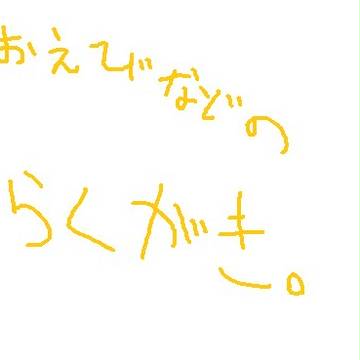 おえびなどの
らくがき。